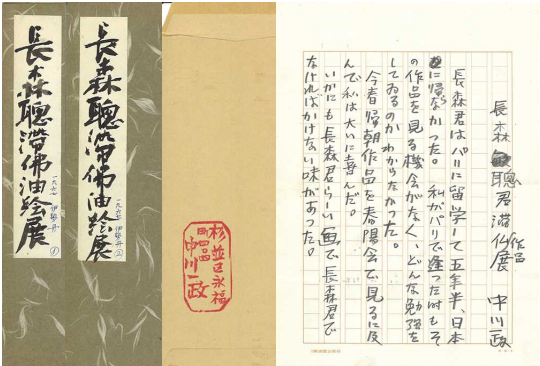 長森聰滞佛油絵展
伊勢丹
①
長森聰滞佛油絵展
伊勢丹
②
杉並区永福
町四〇四
中川一政
長森聰君滞仏作品展 中川一政
長森君はパリに留学して五年半、日本
に帰らなかった。私がパリで逢った時もそ
の作品を見る機会がなく、どんな勉強を
してゐるのかわからなかった。
今春帰朝作品を春陽会で見るに及
んで私は大いに喜んだ。
いかにも長森君らしい画で長森君で
なければかけない味があった。